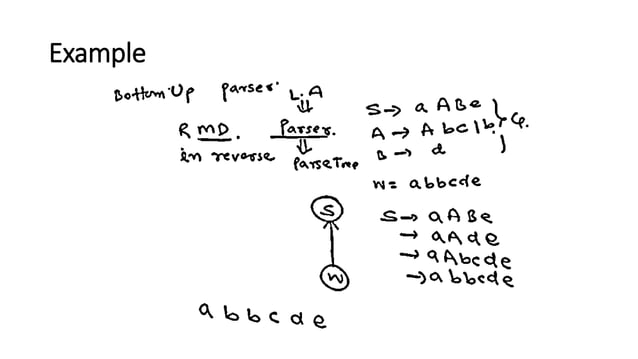 Example
Bottom-Up parser.
L.A
⇓
RMD. Parser.
in reverse
⇓
ParseTree
S → a A B e
A → A b c | b.
B → d
} G.
w = abbcde
S → aABe
→ aAde
→ aAbcde
→ abbcde
S
w
a b b c d e